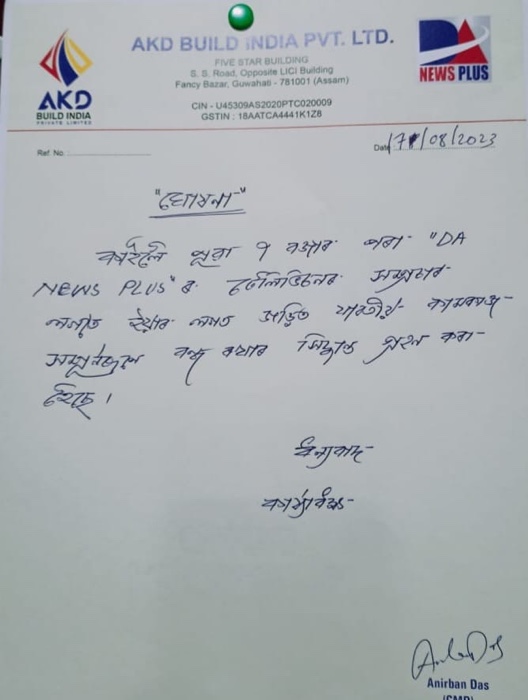 AKD BUILD INDIA PVT. LTD.
FIVE STAR BUILDING
S. S. Road, Opposite LICI Building
Fancy Bazar, Guwahati - 781001 (Assam)
CIN - U45309AS2020PTC020009
GSTIN : 18AATCA4441K1Z8
AKD
BUILD INDIA
PRIVATE LIMITED
DA
NEWS PLUS
Ref. No.
Date 17/08/2023
"ঘোষনা"
কাইলৈ পুৱা ৭ বজাৰ পৰা "DA
NEWS PLUS" ৰ টেলিভিচনৰ সম্প্ৰচাৰ
লগতে ইয়াৰ লগত জড়িত যাৱতীয় কামকাজ
সম্পূৰ্ণৰূপে বন্ধ কৰাৰ সিদ্ধান্ত গ্ৰহণ কৰা
হৈছে।
ধন্যবাদ
Anirban Das
(CMD)